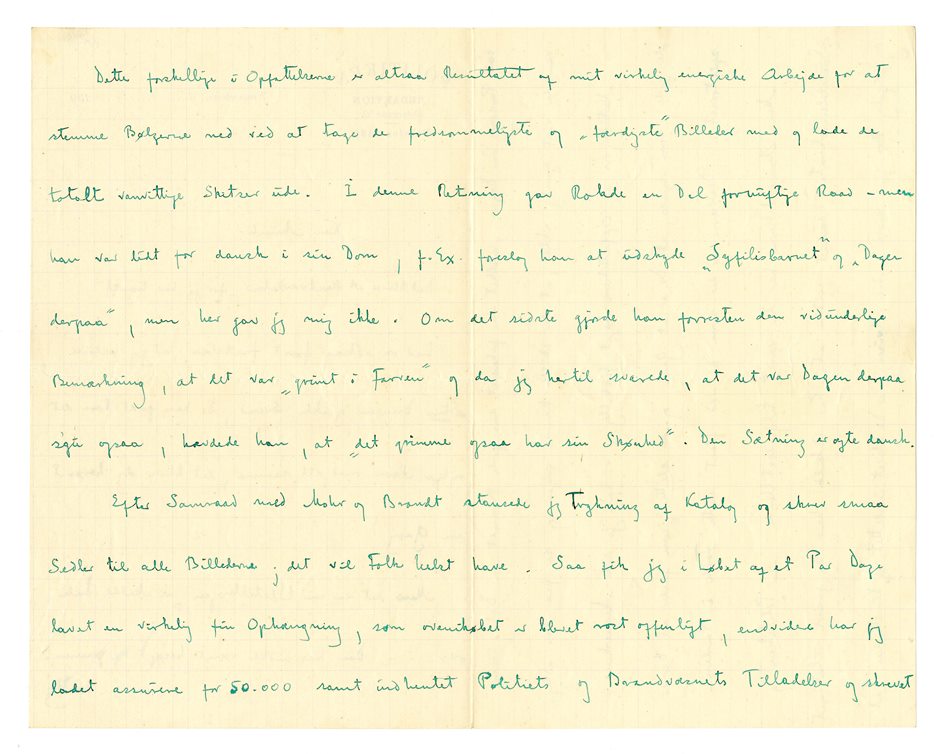 Dette forskellige i Opfattelserne er altsaa Resultatet af mit virkelig energiske Arbejde for at
stemme Bølgerne ned ved at tage de fredsommeligste og „færdigste" Billeder med og lade de
totalt vanvittige Skitser ude. I denne Retning gav Rohde en Del fornuftige Raad – men
han var lidt for dansk i sin Dom, f. Ex. foreslog han at udskyde „Syfilisbarnet" og „Dagen
derpaa", men her gav jeg mig ikke. Om det sidste gjorde han forresten den vidunderlige
Bemærkning, at det var „grimt i Farven" og da jeg hertil svarede, at det var Dagen derpaa
s'gu ogsaa, hævdede han, at „det grimme ogsaa har sin Skønhed". Den Sætning er ægte dansk.
Efter Samraad med Mohr og Brandt stansede jeg Trykning af Katalog og skrev smaa
Sedler til alle Billederne; det vil Folk helst have. Saa fik jeg i Løbet af et Par Dage
lavet en virkelig fin Ophængning, som ovenikøbet er blevet rost offenligt, endvidere har jeg
ladet assurere for 50.000 samt indhentet Politiets og Brandvæsnets Tilladelser og skrevet